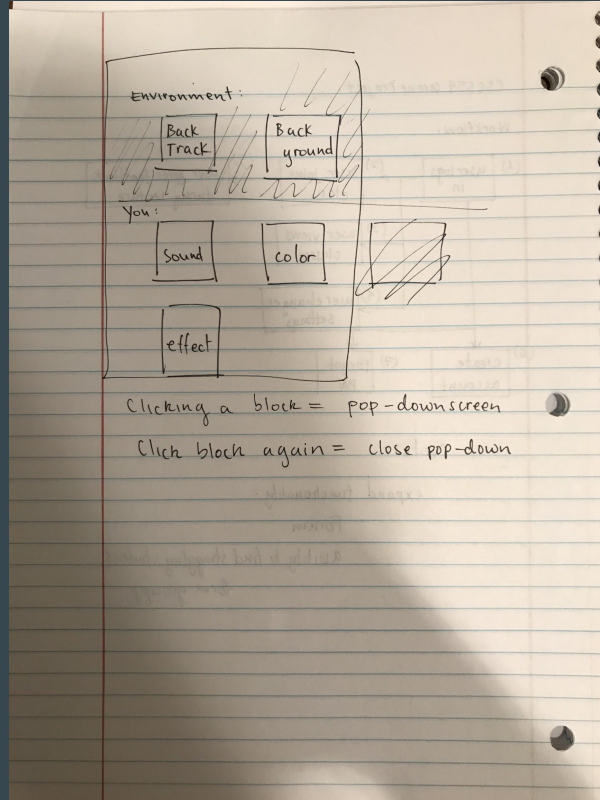 Environment:
Back
Track
Back
ground
You:
sound
color
effect
Clicking a block = pop-downscreen
Click block again = close pop-down